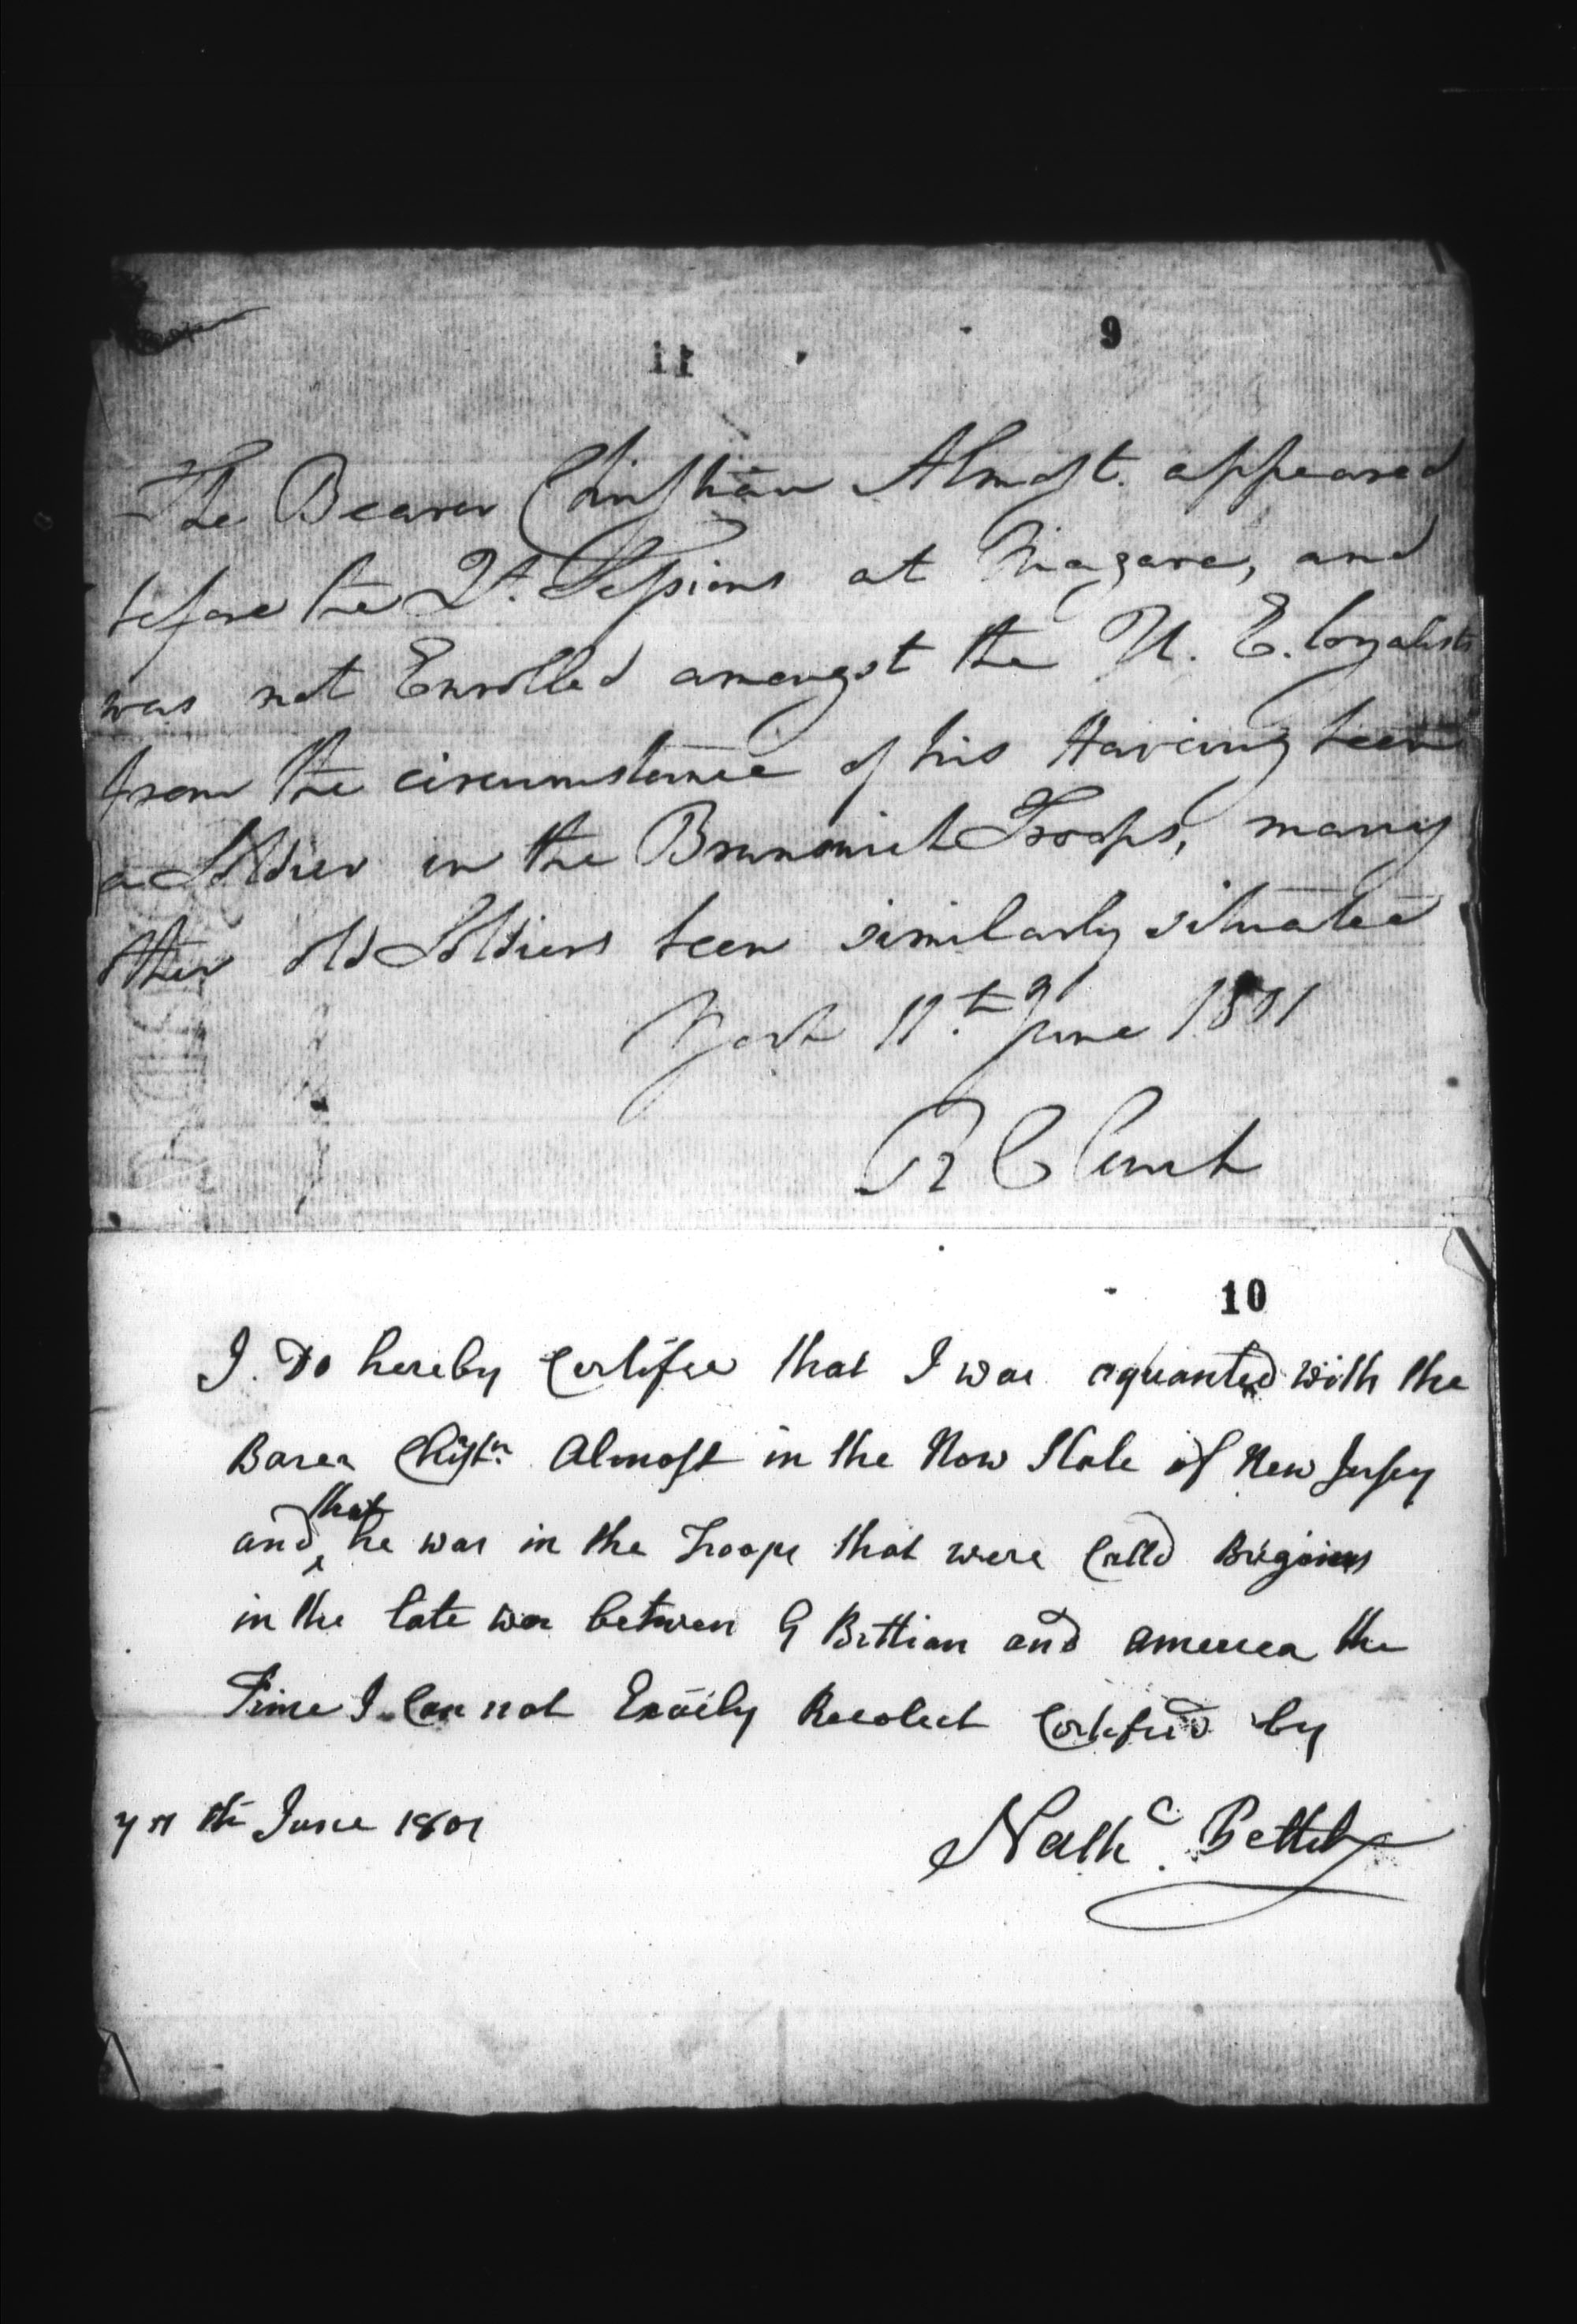 9
11
The Bearer Christian Almost. appeared
before the Qr. Sessions at Niagara, and
was not Enrolled amongst the U. E. loyalists
from the circumstance of his Having been
a Soldier in the Brunswick Troops, many
other old Soldiers been similarly situated
York 11.th June 1801
R Clench
10
I. Do hereby Certifie that I was aquanted with the
Barer Christn. Almost in the Now State of New Jersey
and that he was in the Troops that were Calld
in the late war between G Brittian and america the
Time I Can not Exactly Recolect Certified by
11 th June 1801
Nathl. Pettit